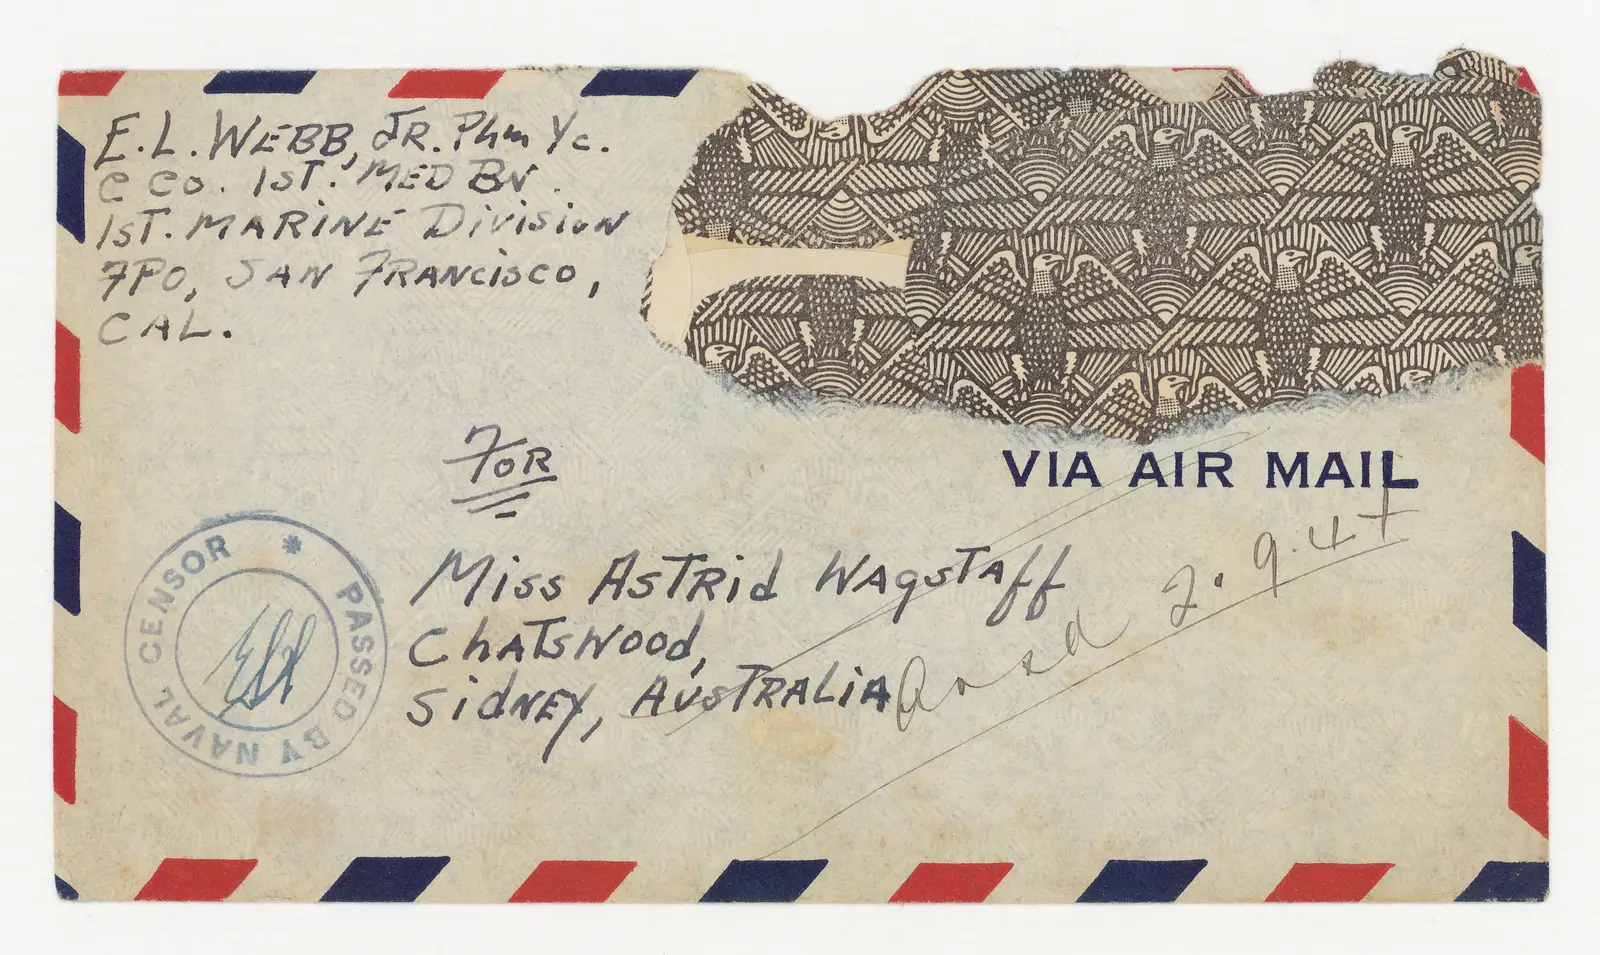 E. L. WEBB, JR. Phm Yc.
C Co. 1ST. MED BN.
1ST. MARINE Division
FPO, SAN FRANCISCO,
CAL.
FOR
VIA AIR MAIL
Miss ASTRid WAgSTAff
ChATSWOOd,
SidNEy, AUSTRALiA
2.9.44
PASSED BY NAVAL CENSOR